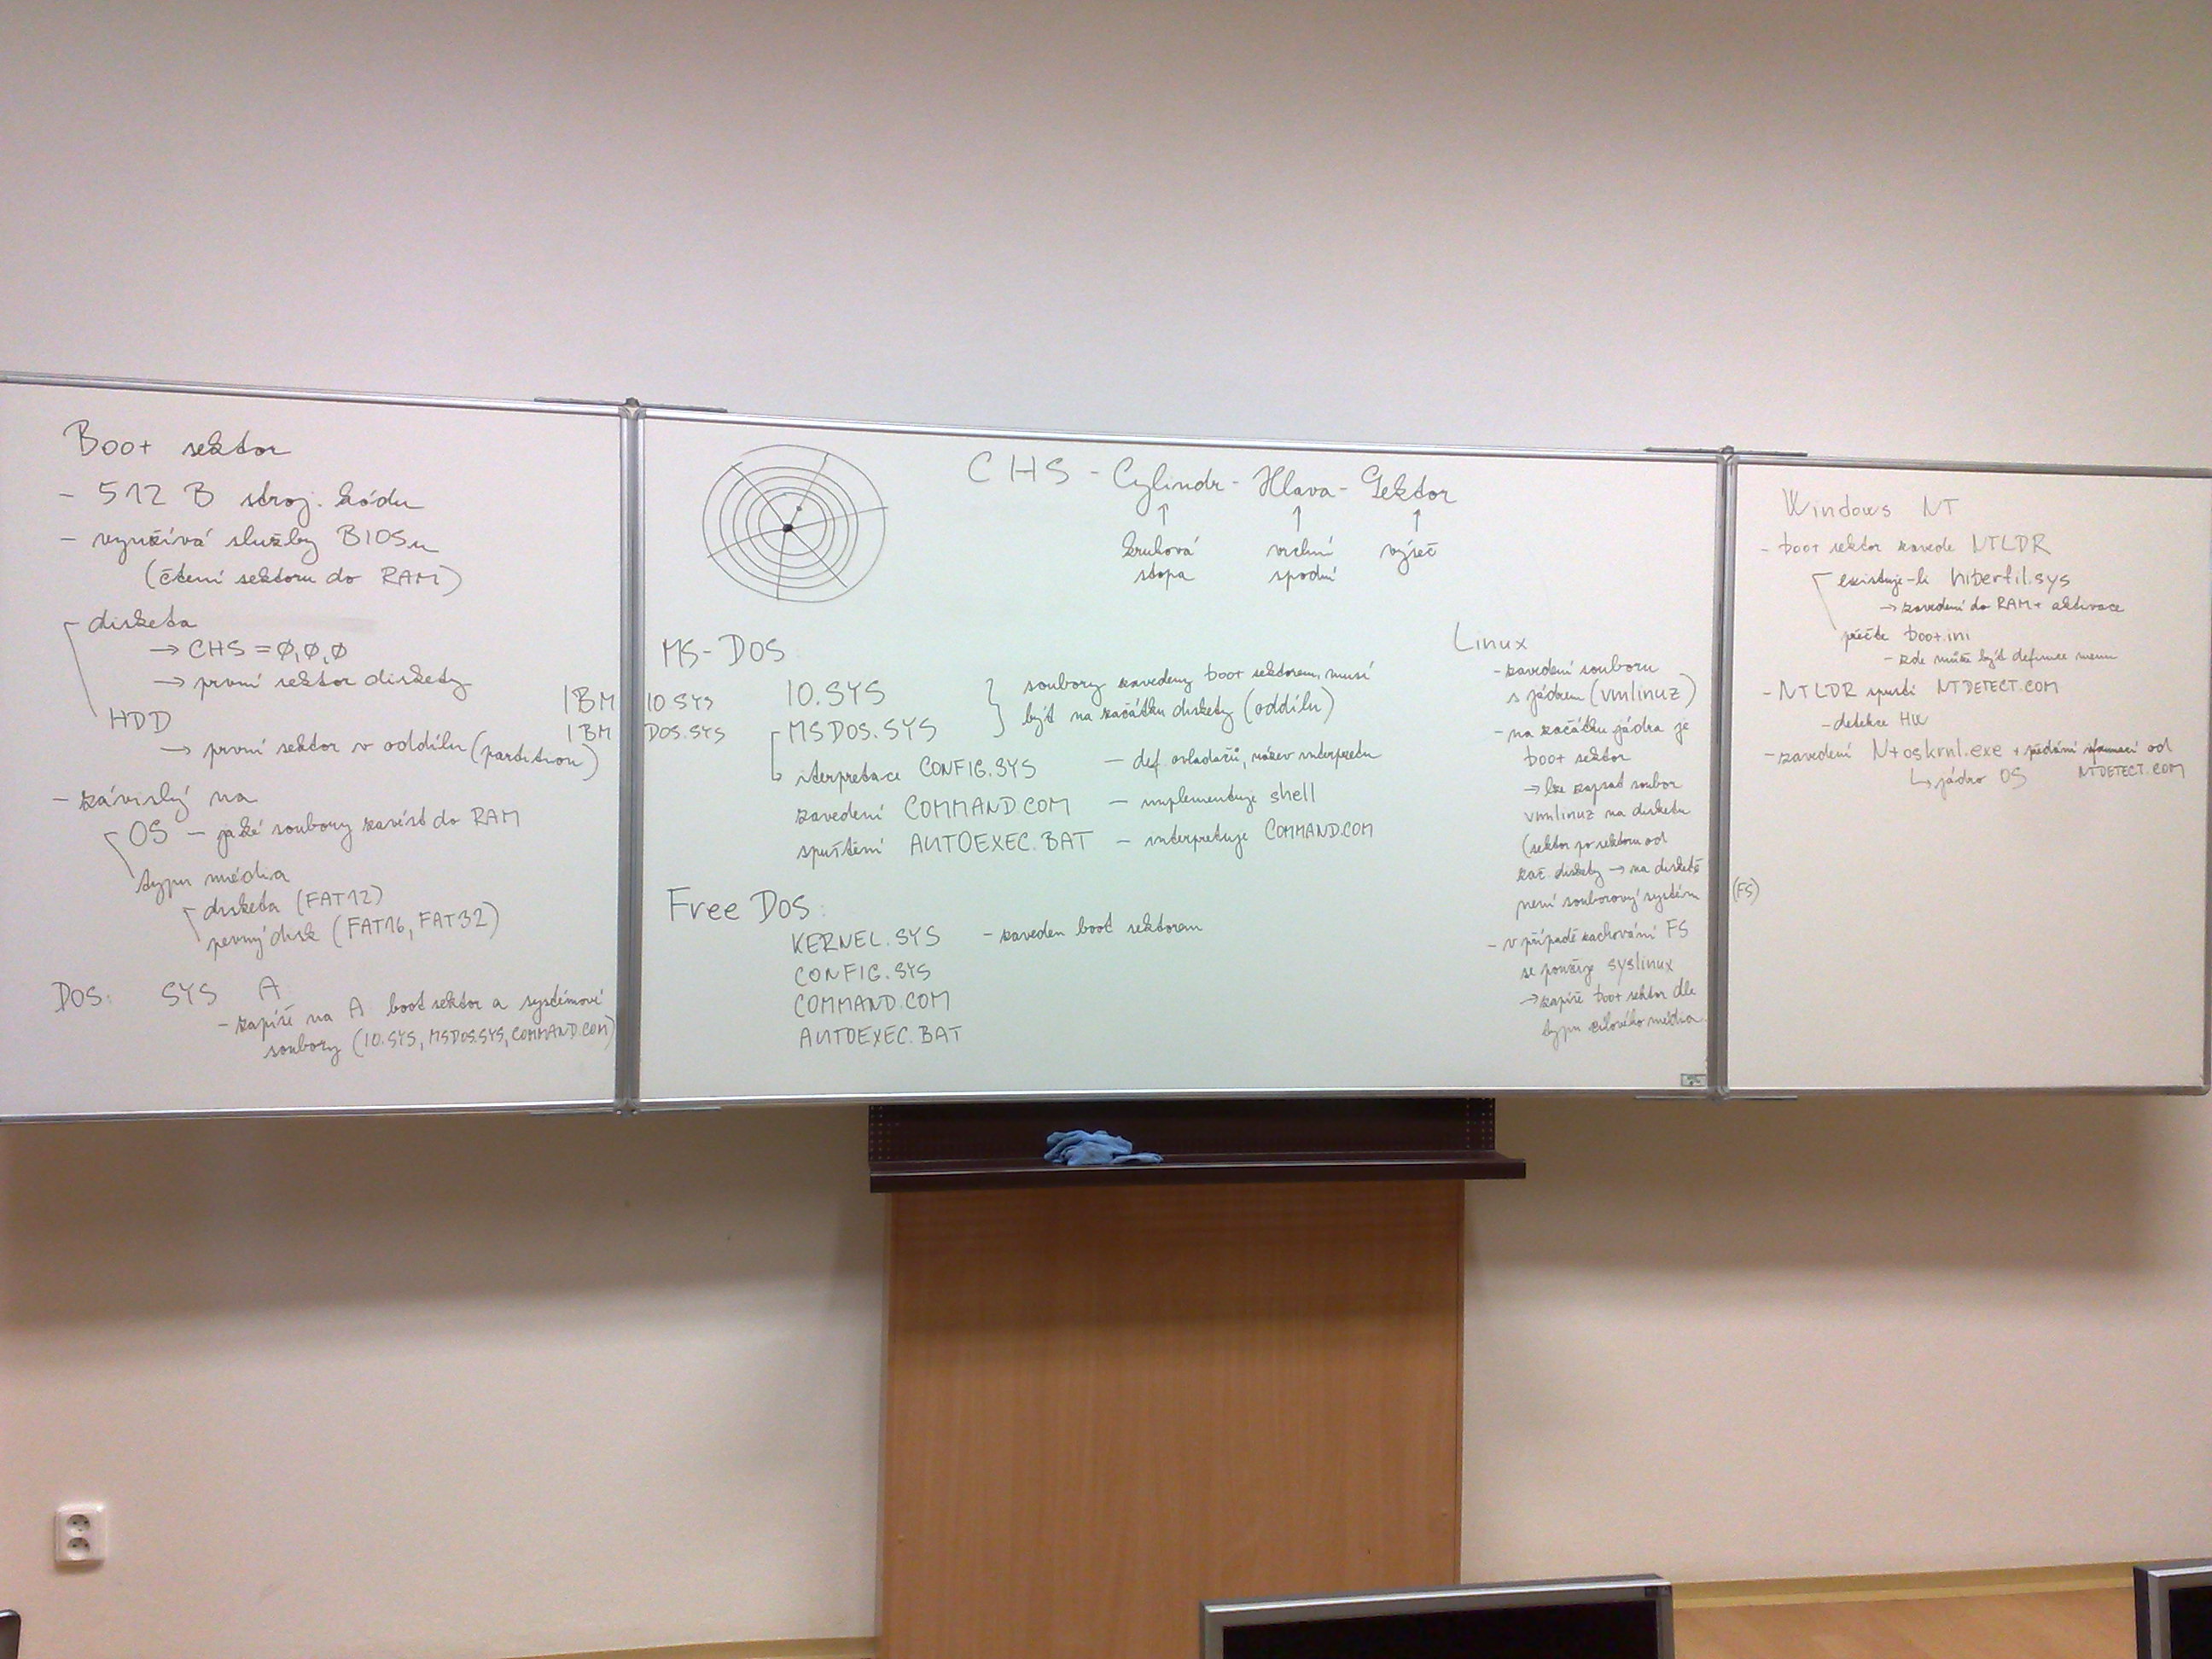 Boot sektor
- 512 B stroj. kódu
- využívá služby BIOSu
(čtení sektoru do RAM)
disketa
→ CHS = 0,0,0
→ první sektor diskety
HDD
→ první sektor v oddílu (partition)
- závislý na
OS - jaké soubory zavést do RAM
typu média
disketa (FAT12)
pevný disk (FAT16, FAT32)
DOS: SYS A:
- zapíše na A boot sektor a systémové
soubory (IO.SYS, MSDOS.SYS, COMMAND.COM)
CHS - Cylindr - Hlava - Sektor
↑ ↑ ↑
kruhová vrchní výseč
stopa spodní
MS-DOS
IBM IO.SYS IO.SYS } soubory zavedeny boot sektorem, musí
IBM DOS.SYS MSDOS.SYS být na začátku diskety (oddílu)
iterpretace CONFIG.SYS - def. ovladačů, název interpretu
zavedení COMMAND.COM - implementuje shell
spuštění AUTOEXEC.BAT - interpretuje COMMAND.COM
Free DOS:
KERNEL.SYS - zaveden boot sektorem
CONFIG.SYS
COMMAND.COM
AUTOEXEC.BAT
Linux
- zavedení souboru
s jádrem (vmlinuz)
- na začátku jádra je
boot sektor
→ lze zapsat soubor
vmlinuz na disketu
(sektor po sektoru od
zač. diskety → na disketě
není souborový systém (FS)
- v případě zachování FS
se použije syslinux
→ zapíše boot sektor dle
typu cílového média
Windows NT
- boot sektor zavede NTLDR
existuje-li hiberfil.sys
→ zavedení do RAM + aktivace
přečte boot.ini
- zde může být definice menu
- NTLDR spustí NTDETECT.COM
- detekce HW
- zavedení Ntoskrnl.exe + předání informací od
↳ jádro OS NTDETECT.COM